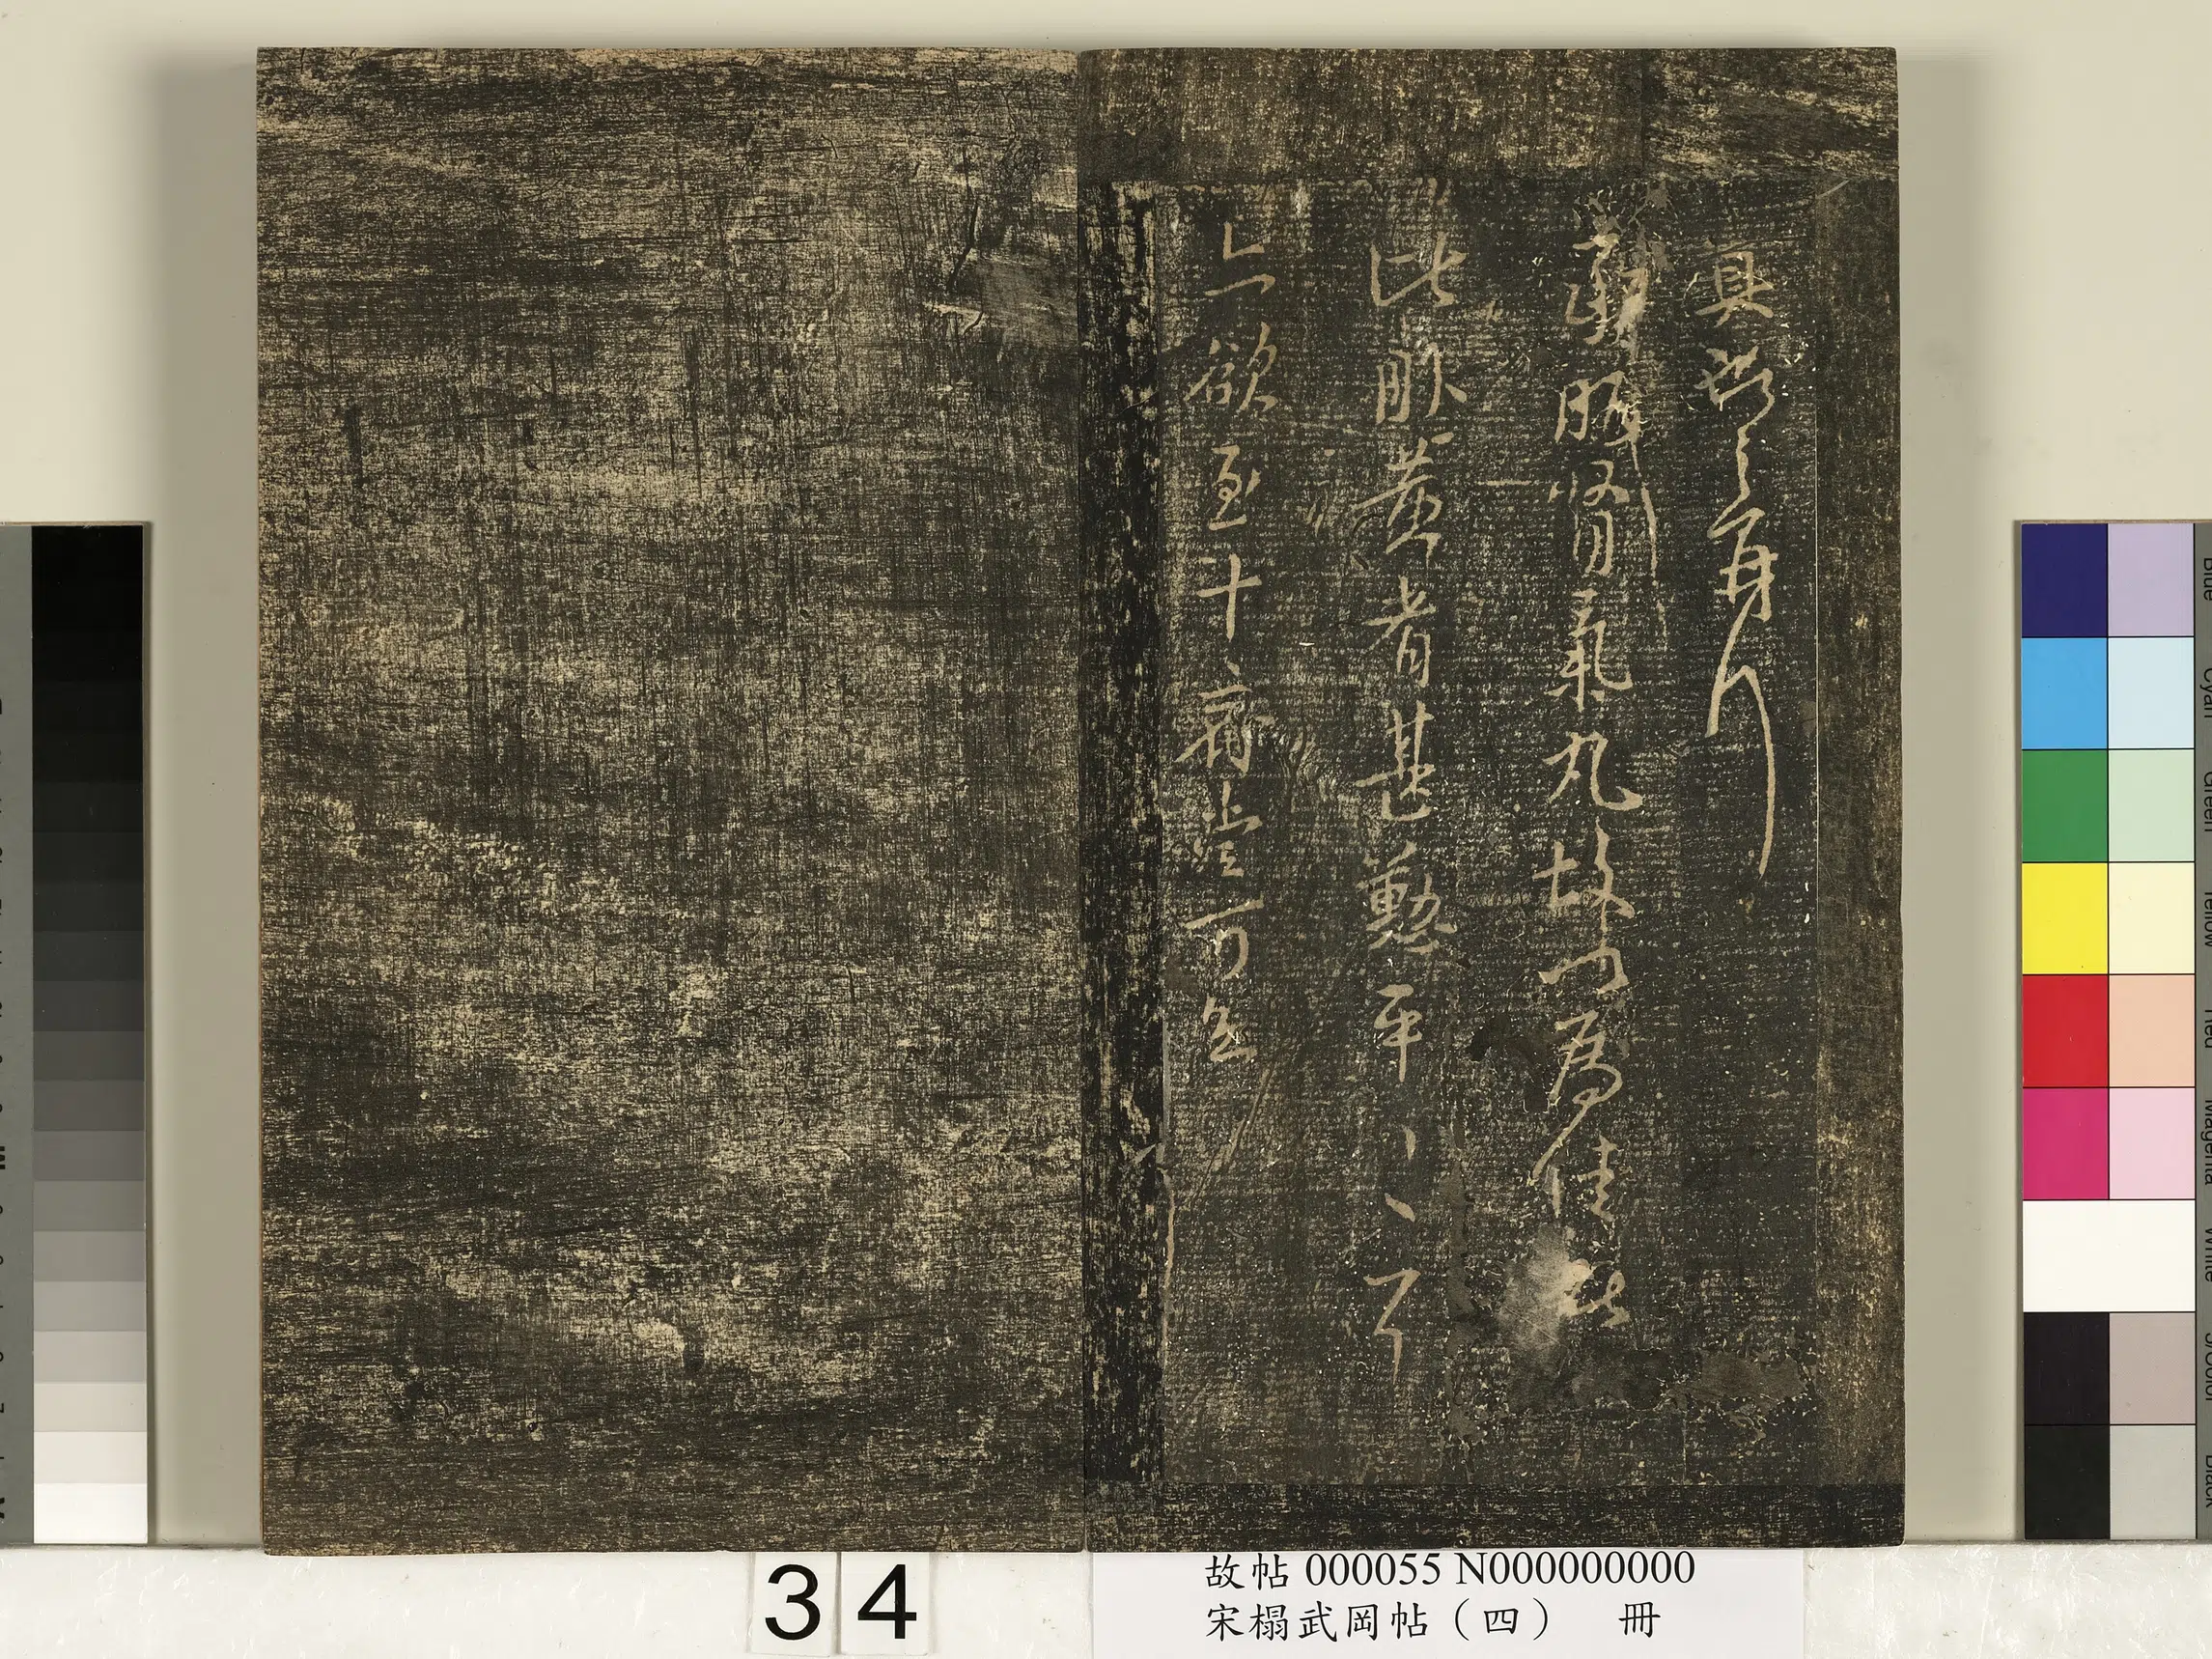 具
服腎氣丸故以為佳
比服黃耆甚懃平〻耳
亦欲至十齊當可知
34
故帖 000055 N000000000
宋榻武岡帖（四） 冊
Blue
Cyan
Green
Yellow
Red
Magenta
White
3/Color
Black